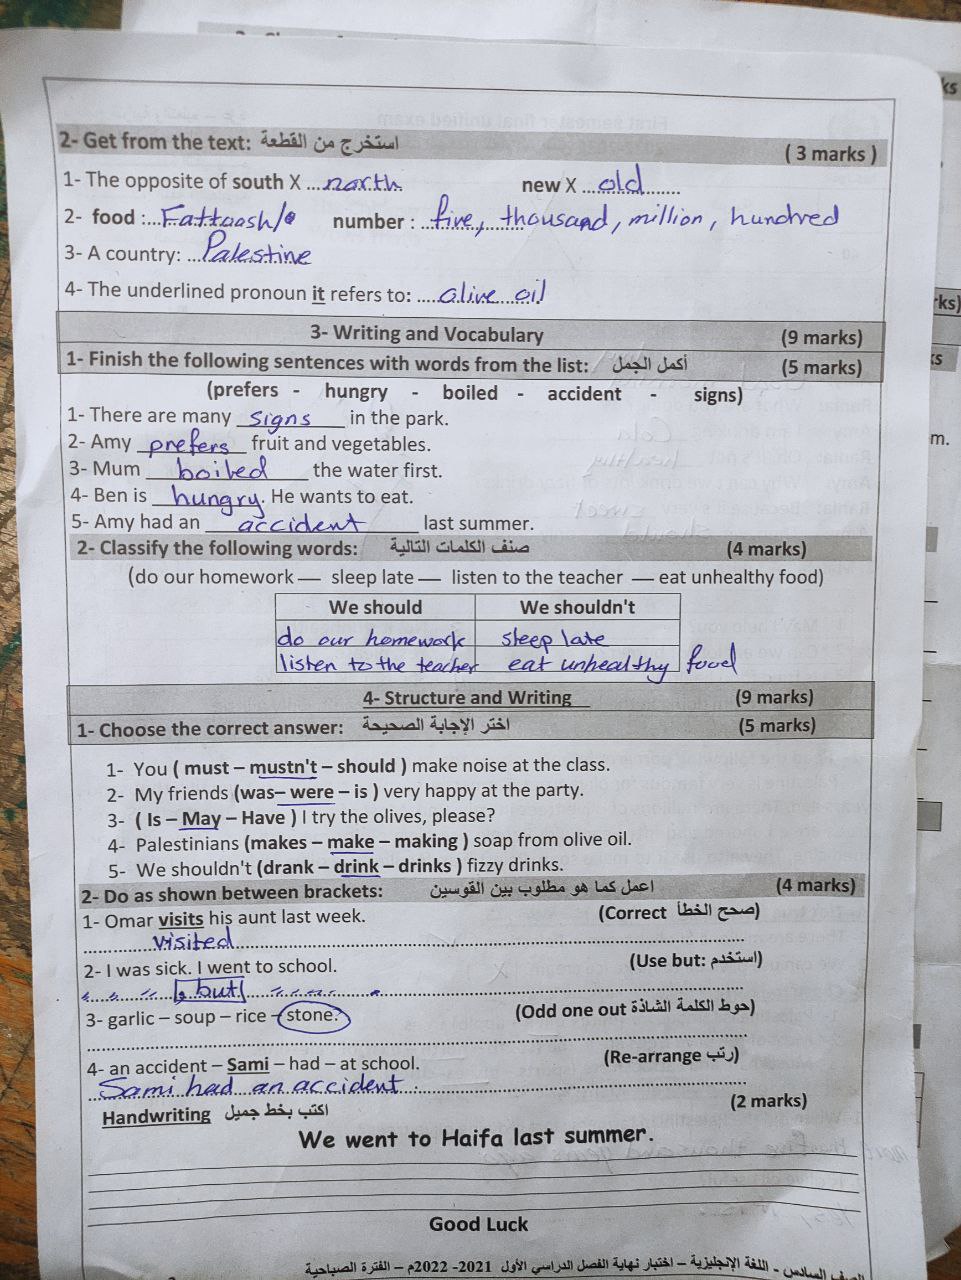 2- Get from the text: استخرج من القطعة ( 3 marks )
1- The opposite of south X ...north new X ...old.........
2- food :...Fattoosh/ number : ..five, thousand, million, hundred
3- A country: ...Palestine
4- The underlined pronoun it refers to: ....olive oil
3- Writing and Vocabulary (9 marks)
1- Finish the following sentences with words from the list: أكمل الجمل (5 marks)
(prefers - hungry - boiled - accident - signs)
1- There are many signs in the park.
2- Amy prefers fruit and vegetables.
3- Mum boiled the water first.
4- Ben is hungry. He wants to eat.
5- Amy had an accident last summer.
2- Classify the following words: صنف الكلمات التالية (4 marks)
(do our homework — sleep late — listen to the teacher — eat unhealthy food)
We should We shouldn't
do our homework sleep late
listen to the teacher eat unhealthy food
4- Structure and Writing (9 marks)
1- Choose the correct answer: اختر الإجابة الصحيحة (5 marks)
1- You ( must – mustn't – should ) make noise at the class.
2- My friends (was– were – is ) very happy at the party.
3- ( Is – May – Have ) I try the olives, please?
4- Palestinians (makes – make – making ) soap from olive oil.
5- We shouldn't (drank – drink – drinks ) fizzy drinks.
2- Do as shown between brackets: اعمل كما هو مطلوب بين القوسين (4 marks)
1- Omar visits his aunt last week. (Correct صحح الخطأ)
visited
2- I was sick. I went to school. (Use but: استخدم)
, but
3- garlic – soup – rice – stone. (Odd one out حوط الكلمة الشاذة)
4- an accident – Sami – had – at school. (Re-arrange رتب)
Sami had an accident
Handwriting اكتب بخط جميل (2 marks)
We went to Haifa last summer.
Good Luck
الصف السادس - اللغة الإنجليزية – اختبار نهاية الفصل الدراسي الأول 2021- 2022م – الفترة الصباحية